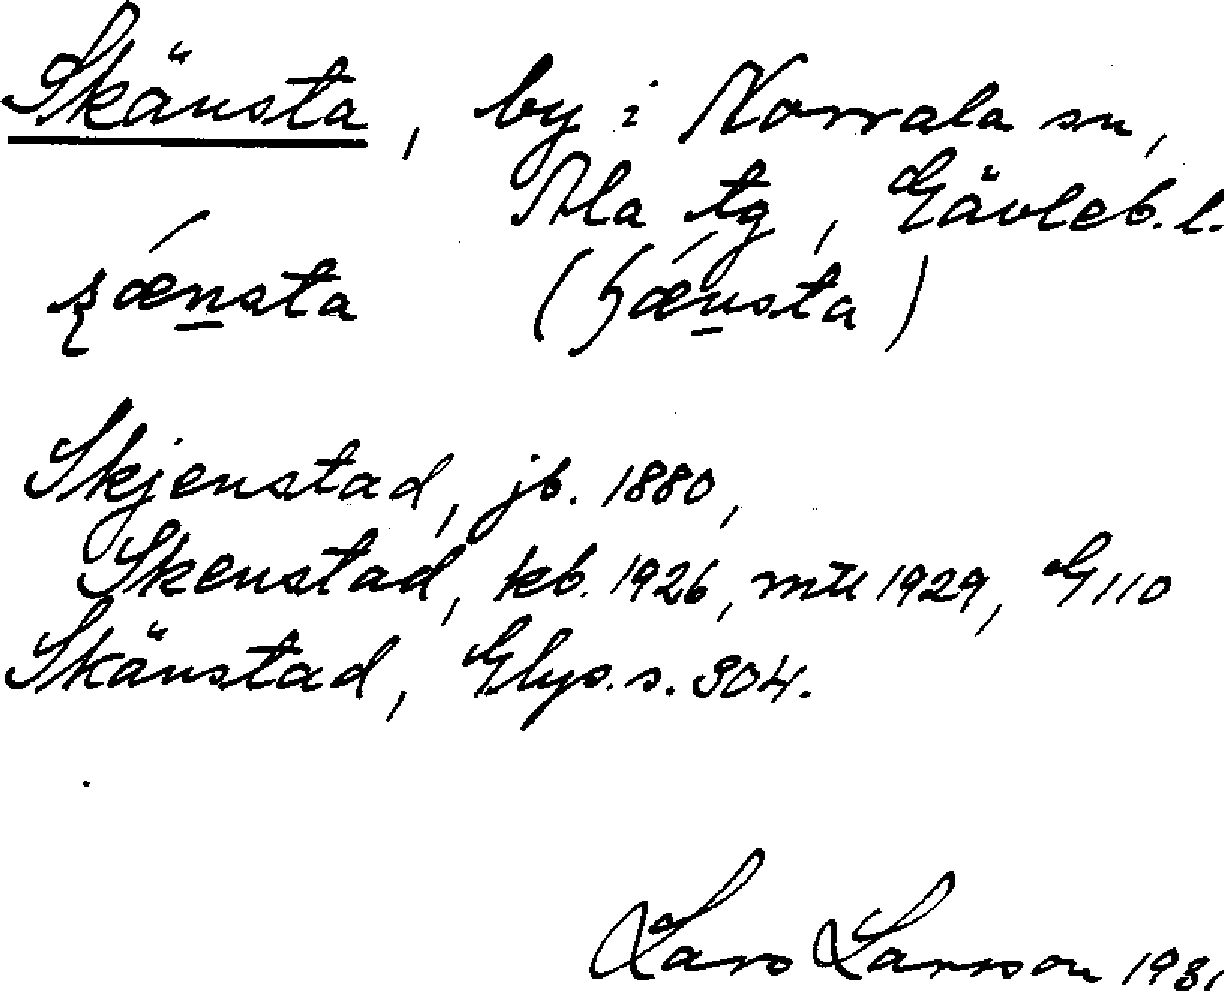 Skänsta, by i Norrala sn,
Ala tg, Gävleb. l.
ʂǽn̲sta (ɧǽn̲sta)
Skjenstad, jb. 1880,
Skenstad, kb. 1926, mtl 1929, G 110
Skänstad, Glys. s. 304.
Lars Larsson 1931